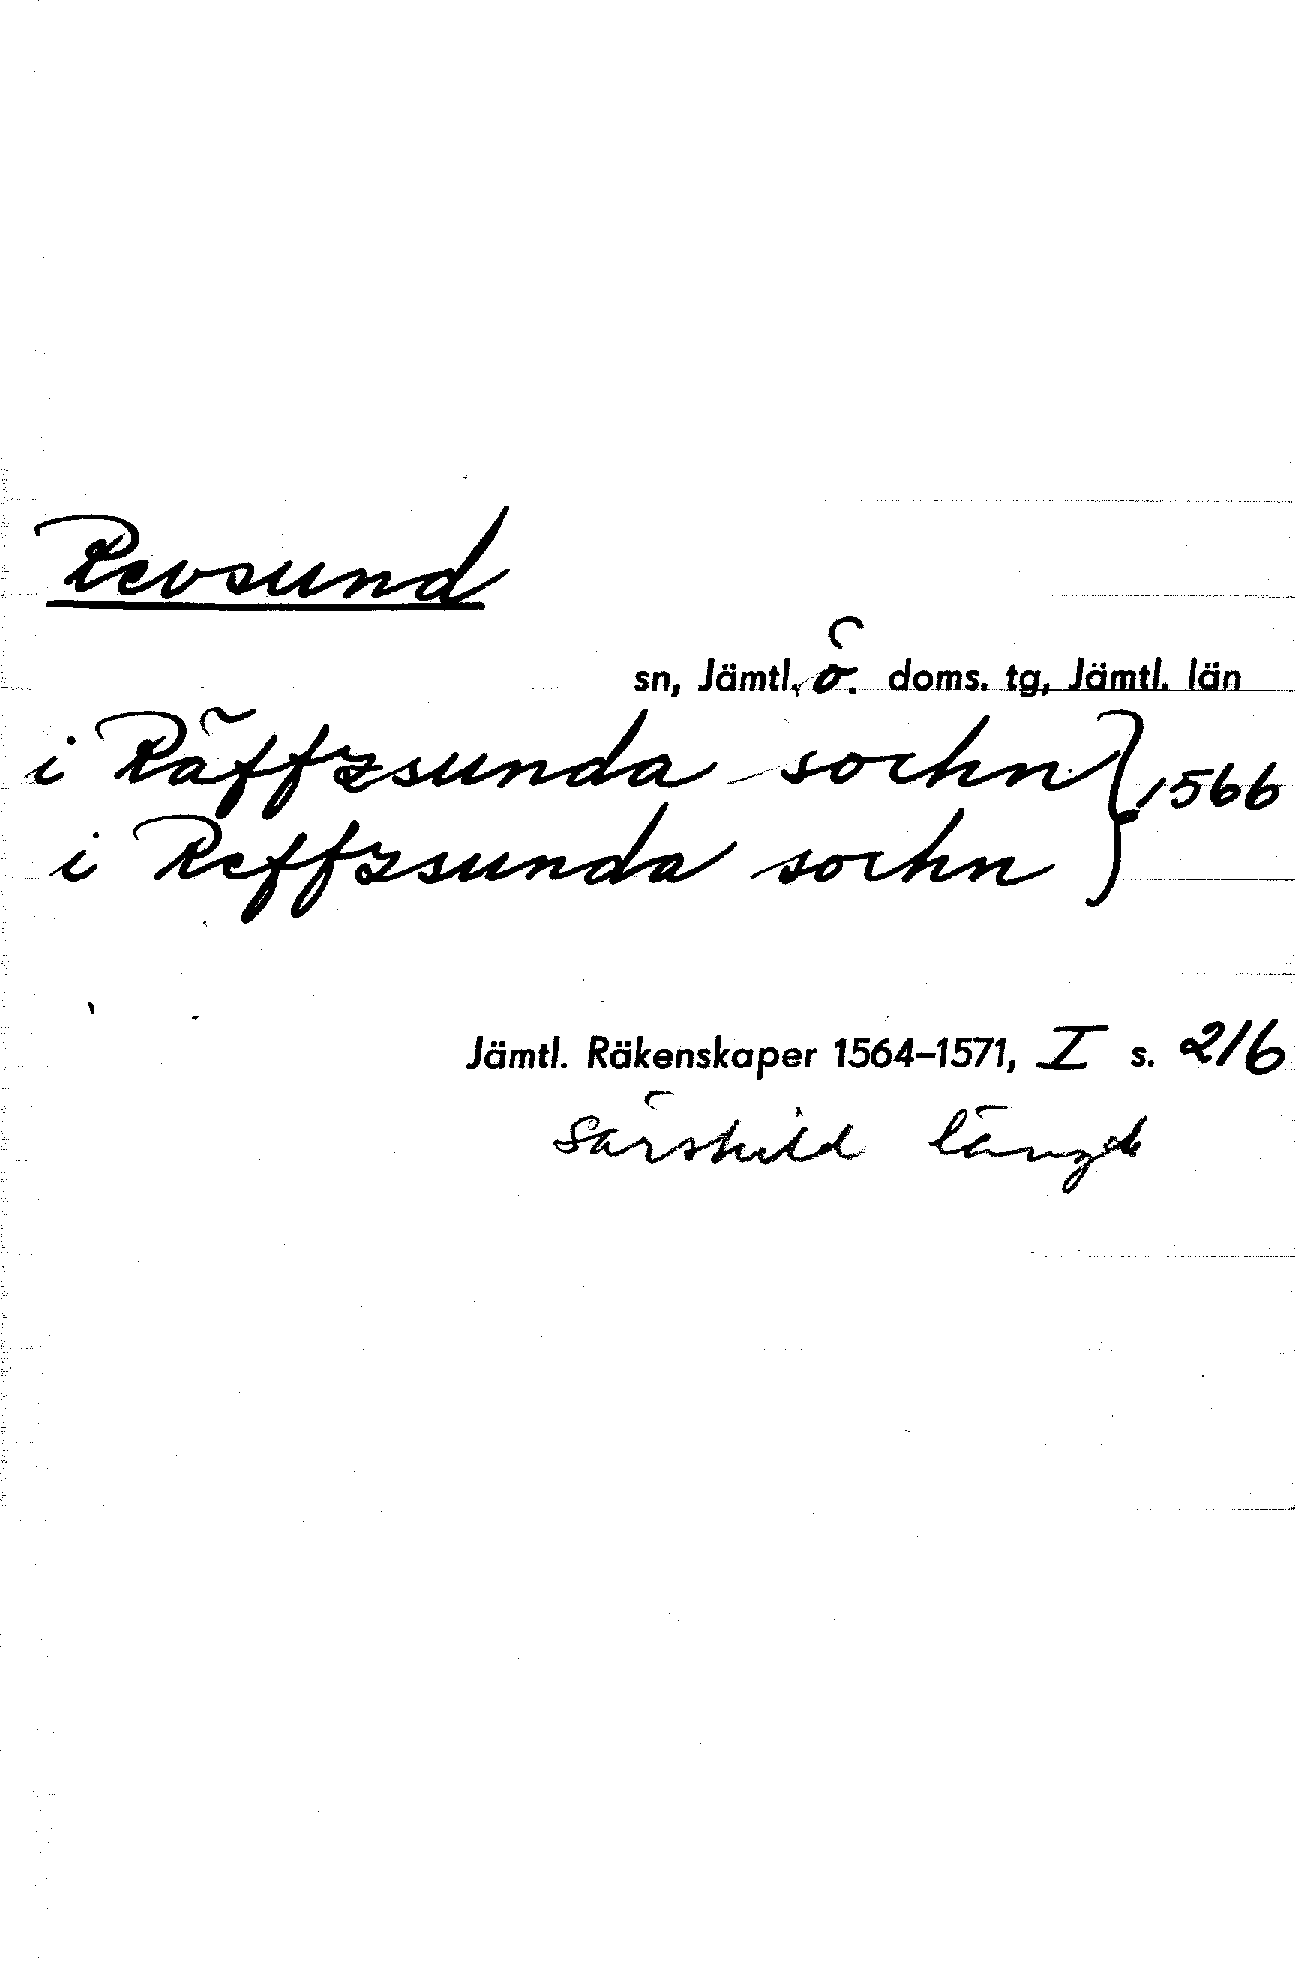 Revsund
sn, Jämtl. ö. doms. tg, Jämtl. län
i Räffzsunda sochn } 1566
i Reffzsunda sochn
Jämtl. Räkenskaper 1564–1571, I s. 216
särskild längd